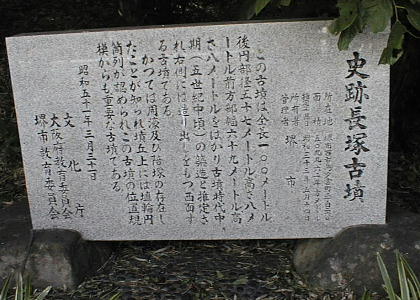 史跡長塚古墳
所在地
面積
指定
所有者
管理者 堺市
この古墳は全長一〇〇メートル
後円部径五十七メートル高さ八メ
ートル前方部幅六十九メートル高
さ八メートルをはかり古墳時代中
期(五世紀中頃)の築造と推定さ
れ右側には造り出しをもつ西面す
る古墳である。
かつては周濠及び陪塚の存在し
たことが知られ墳丘上には埴輪円
筒列が認められこの古墳の位置規
模からも重要な古墳である。
昭和五十二年三月三十一日
文化庁
大阪府教育委員会
堺市教育委員会